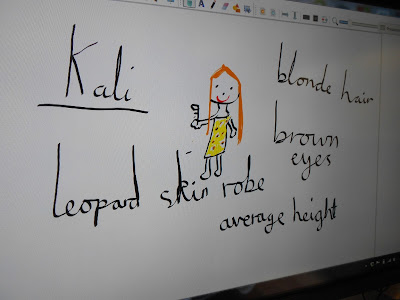 Kali
blonde hair
brown
eyes
leopard skin robe
average height